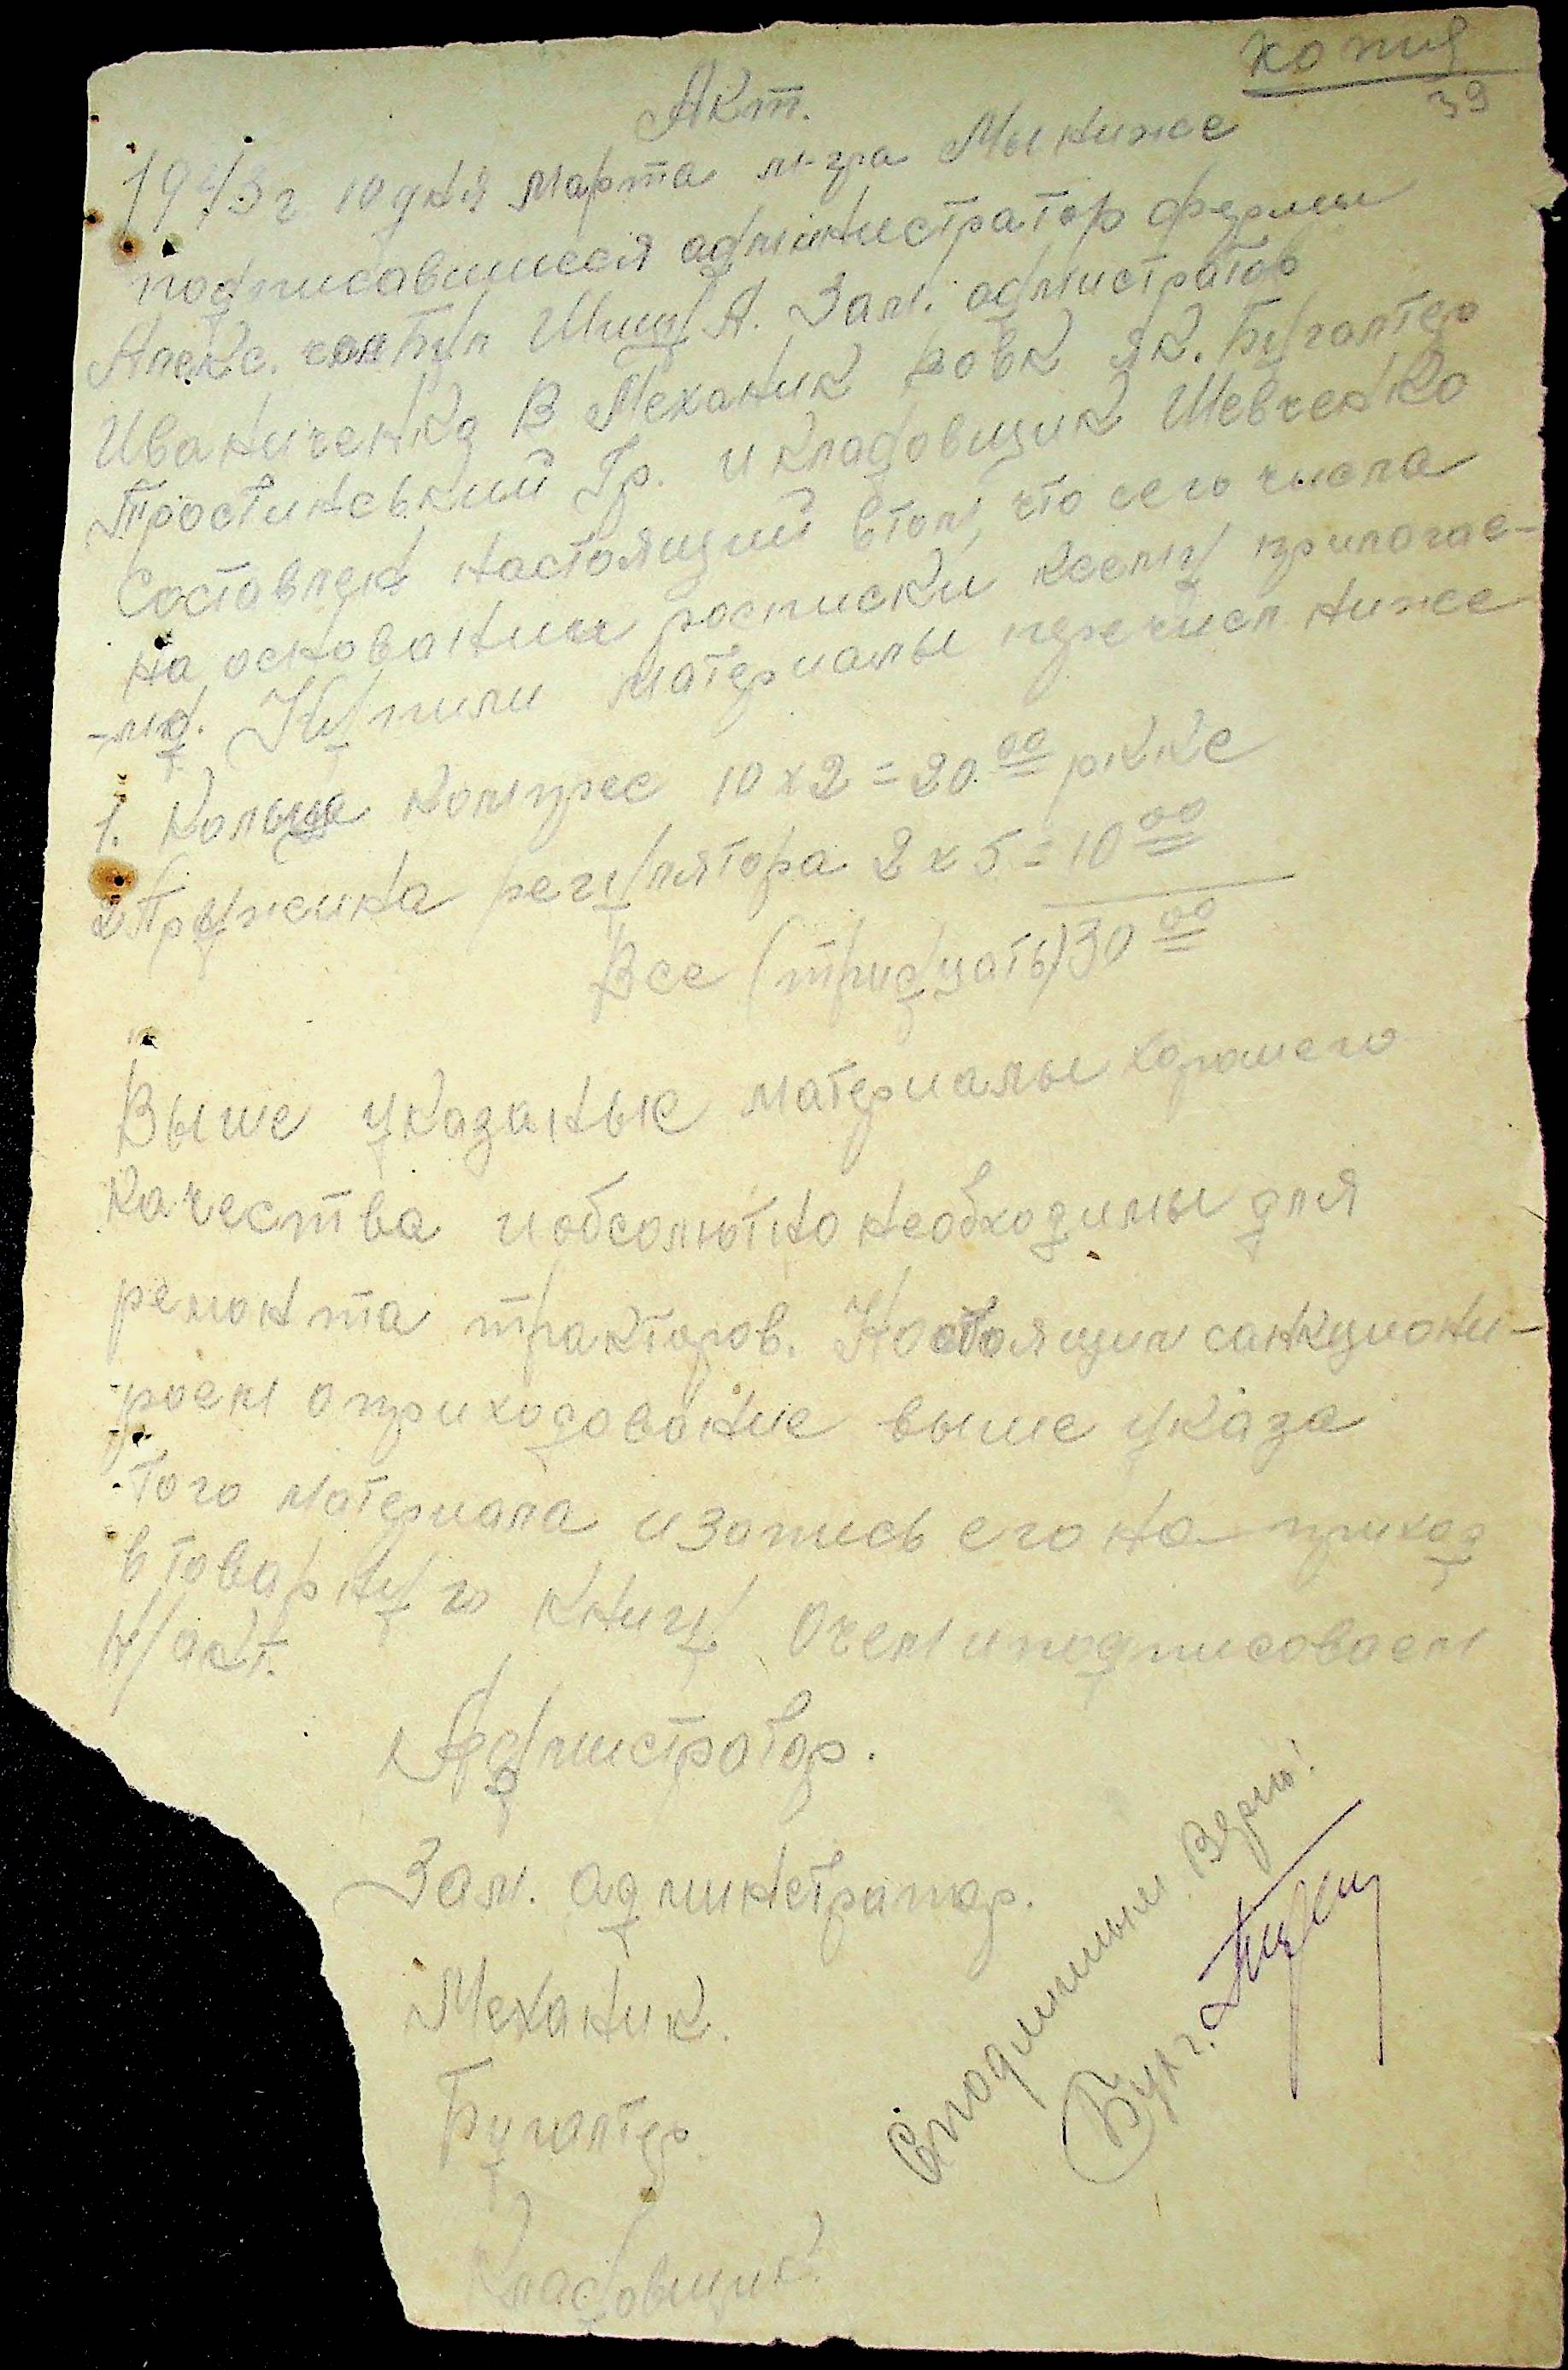 копия
39
Акт.
1943 г 10 дня марта м-ца Мы ниже
подписавшиеся администратор фермы
Алекс. Шмид А. Зам. адмистратор
Иваниченко В Механик Вовк Як. Бугалтер
Тростинський Гр. и кладовщик Шевченко
Составлен настоящий втом, что сего числа
на основании росписки ксему прилогае-
-мо. Купили материалы перечисл ниже
1. Кольца компрес 10 х 2 = 20.00 рккс
2 Пружина регулятора 2 х 5 = 10 00
Все (тридцать) 30 00
Выше указаные материалы хорошего
качества иобсолютно необходимы для
ремонта тракторов. Настоящим санкциони-
роем оприходование выше указа
того материала изапись его на приход
в товарную книгу Очем иподписоваем
н/акт.
Адмистратор.
Зам. админстратор.
Механик.
Бугалтер.
Кладовщик.
Сподлинным Верно!
Бухг.